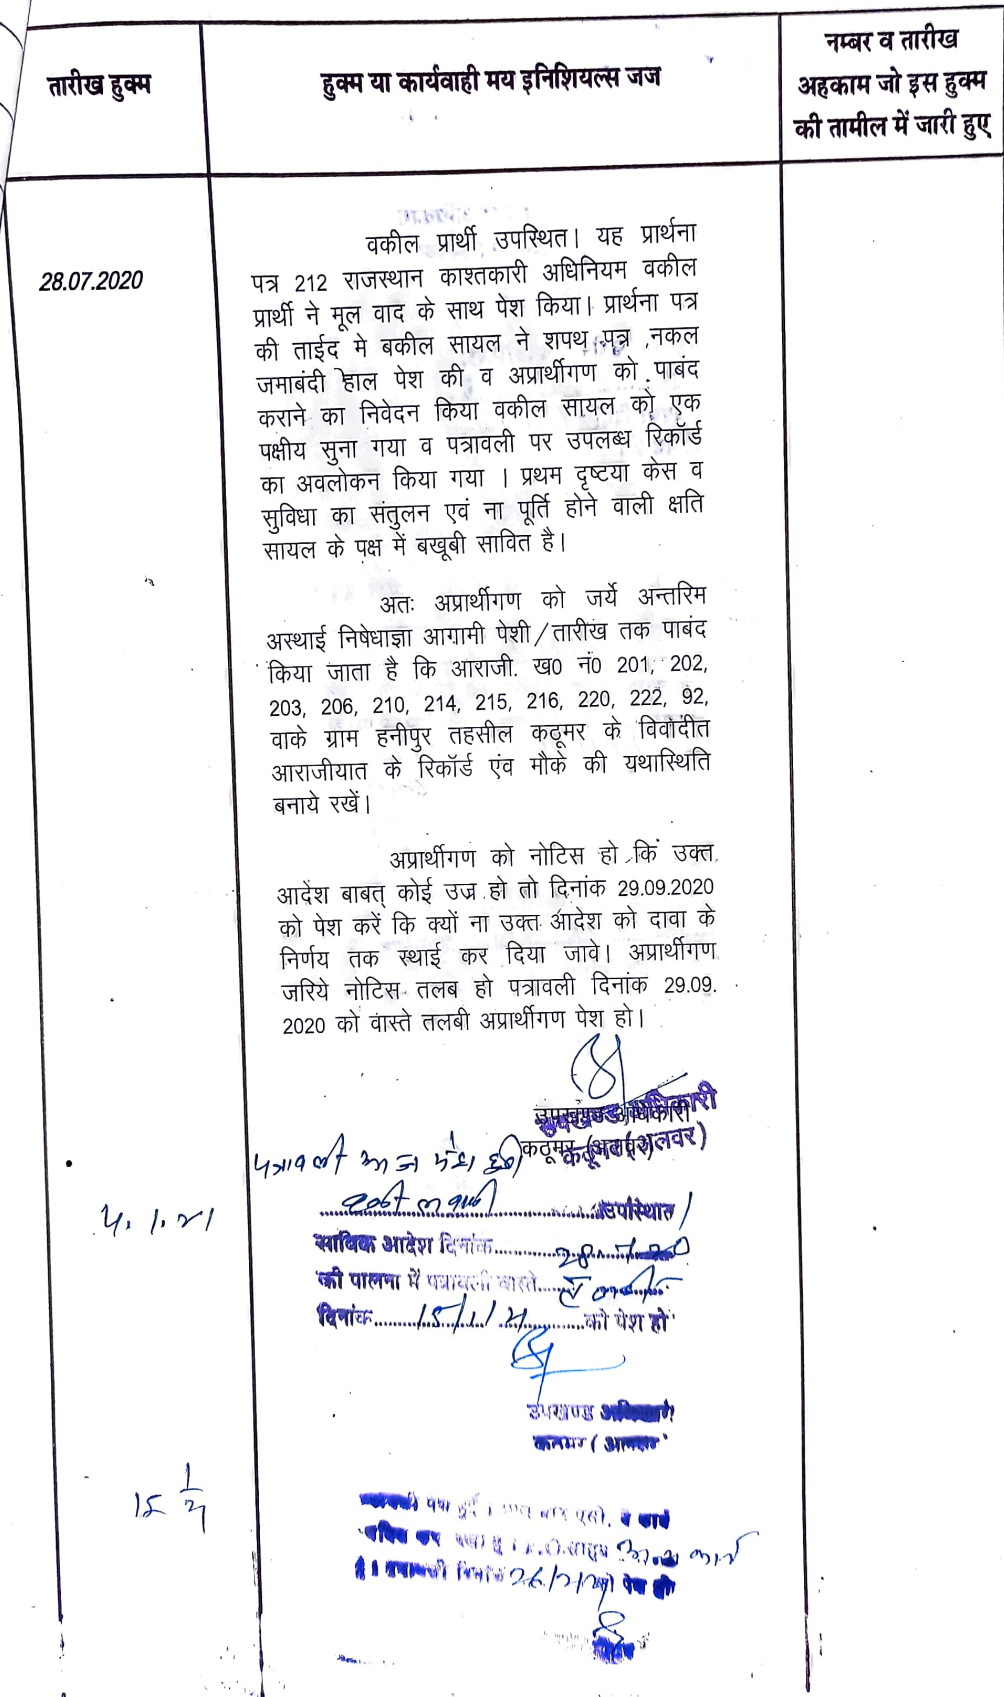 तारीख हुक्म
हुक्म या कार्यवाही मय इनिशियल्स जज
नम्बर व तारीख
अहकाम जो इस हुक्म
की तामील में जारी हुए
28.07.2020
वकील प्रार्थी उपस्थित। यह प्रार्थना
पत्र 212 राजस्थान काश्तकारी अधिनियम वकील
प्रार्थी ने मूल वाद के साथ पेश किया। प्रार्थना पत्र
की ताईद मे बकील सायल ने शपथ पत्र ,नकल
जमाबंदी हाल पेश की व अप्रार्थीगण को पाबंद
कराने का निवेदन किया वकील सायल को एक
पक्षीय सुना गया व पत्रावली पर उपलब्ध रिकॉर्ड
का अवलोकन किया गया । प्रथम दृष्टया केस व
सुविधा का संतुलन एवं ना पूर्ति होने वाली क्षति
सायल के पक्ष में बखूबी सावित है।
अतः अप्रार्थीगण को जर्ये अन्तरिम
अस्थाई निषेधाज्ञा आगामी पेशी/तारीख तक पाबंद
किया जाता है कि आराजी. ख0 नं0 201, 202,
203, 206, 210, 214, 215, 216, 220, 222, 92,
वाके ग्राम हनीपुर तहसील कठूमर के विवादीत
आराजीयात के रिकॉर्ड एंव मौके की यथास्थिति
बनाये रखें।
अप्रार्थीगण को नोटिस हो कि उक्त
आदेश बाबत् कोई उज्र हो तो दिनांक 29.09.2020
को पेश करें कि क्यों ना उक्त आदेश को दावा के
निर्णय तक स्थाई कर दिया जावे। अप्रार्थीगण
जरिये नोटिस तलब हो पत्रावली दिनांक 29.09.
2020 को वास्ते तलबी अप्रार्थीगण पेश हो।
उपखण्ड अधिकारी
कठूमर (अलवर)
पत्रावली आज पेश हुई
4.1.21
उपस्थित
साबिक आदेश दिनांक 28.7.20
की पालना में पत्रावली वास्ते
दिनांक 15/1/21 को पेश हो
उपखण्ड अधिकारी
कठूमर (अलवर
15 1/21
पेश हो